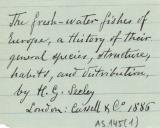 The fresh-water fishes of
Europe, a History of their
genera, species, structure,
habits, and distribution,
by H. G. Seeley
London: Cassell & Co 1886
AS.145(1)